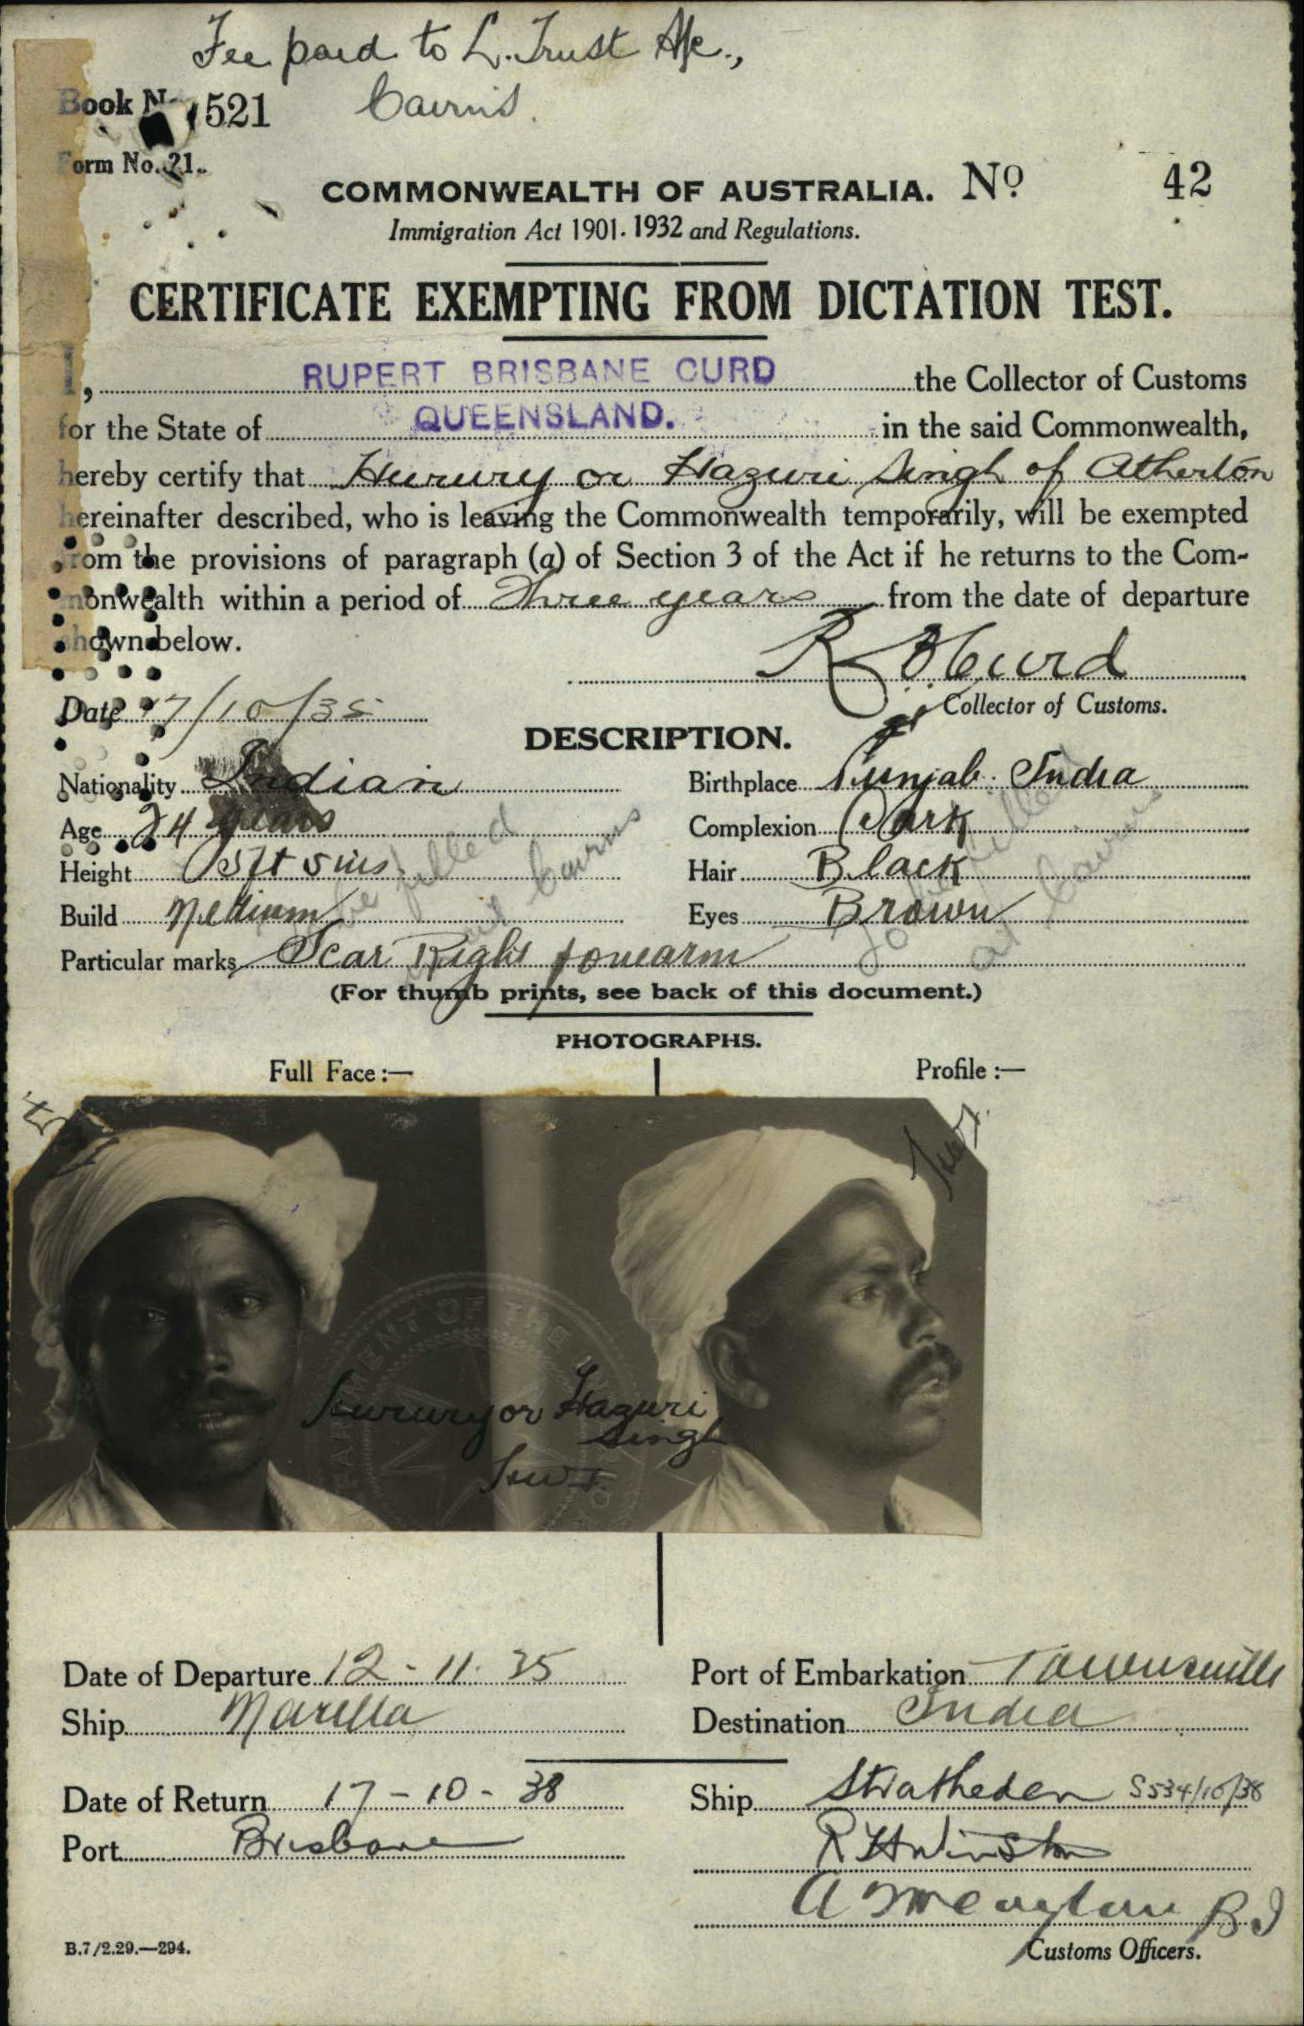 Fee paid to L. Trust A/c.,
Cairns.
Book No 521
Form No. 21.
COMMONWEALTH OF AUSTRALIA. No 42
Immigration Act 1901-1932 and Regulations.
CERTIFICATE EXEMPTING FROM DICTATION TEST.
I, RUPERT BRISBANE CURD the Collector of Customs
for the State of QUEENSLAND. in the said Commonwealth,
hereby certify that Hurury or Hazuri Singh of Atherton
hereinafter described, who is leaving the Commonwealth temporarily, will be exempted
from the provisions of paragraph (a) of Section 3 of the Act if he returns to the Com-
monwealth within a period of Three years from the date of departure
shown below.
R B Curd
Collector of Customs.
Date 17/10/35
DESCRIPTION.
Nationality Indian Birthplace Punjab. India
Age 24 years Complexion Dark
Height 5ft 5ins Hair Black
Build Medium Eyes Brown
to be filled at Cairns
to be filled at Cairns
Particular marks Scar Right forearm
(For thumb prints, see back of this document.)
PHOTOGRAPHS.
Full Face:— Profile:—
Hurury or Hazuri
Singh
Date of Departure 12-11-35 Port of Embarkation Townsville
Ship Marella Destination India
Date of Return 17-10-38 Ship Stratheden S534/10/38
Port Brisbane R H Winston
B.I
Customs Officers.
B.7/2.29.—294.